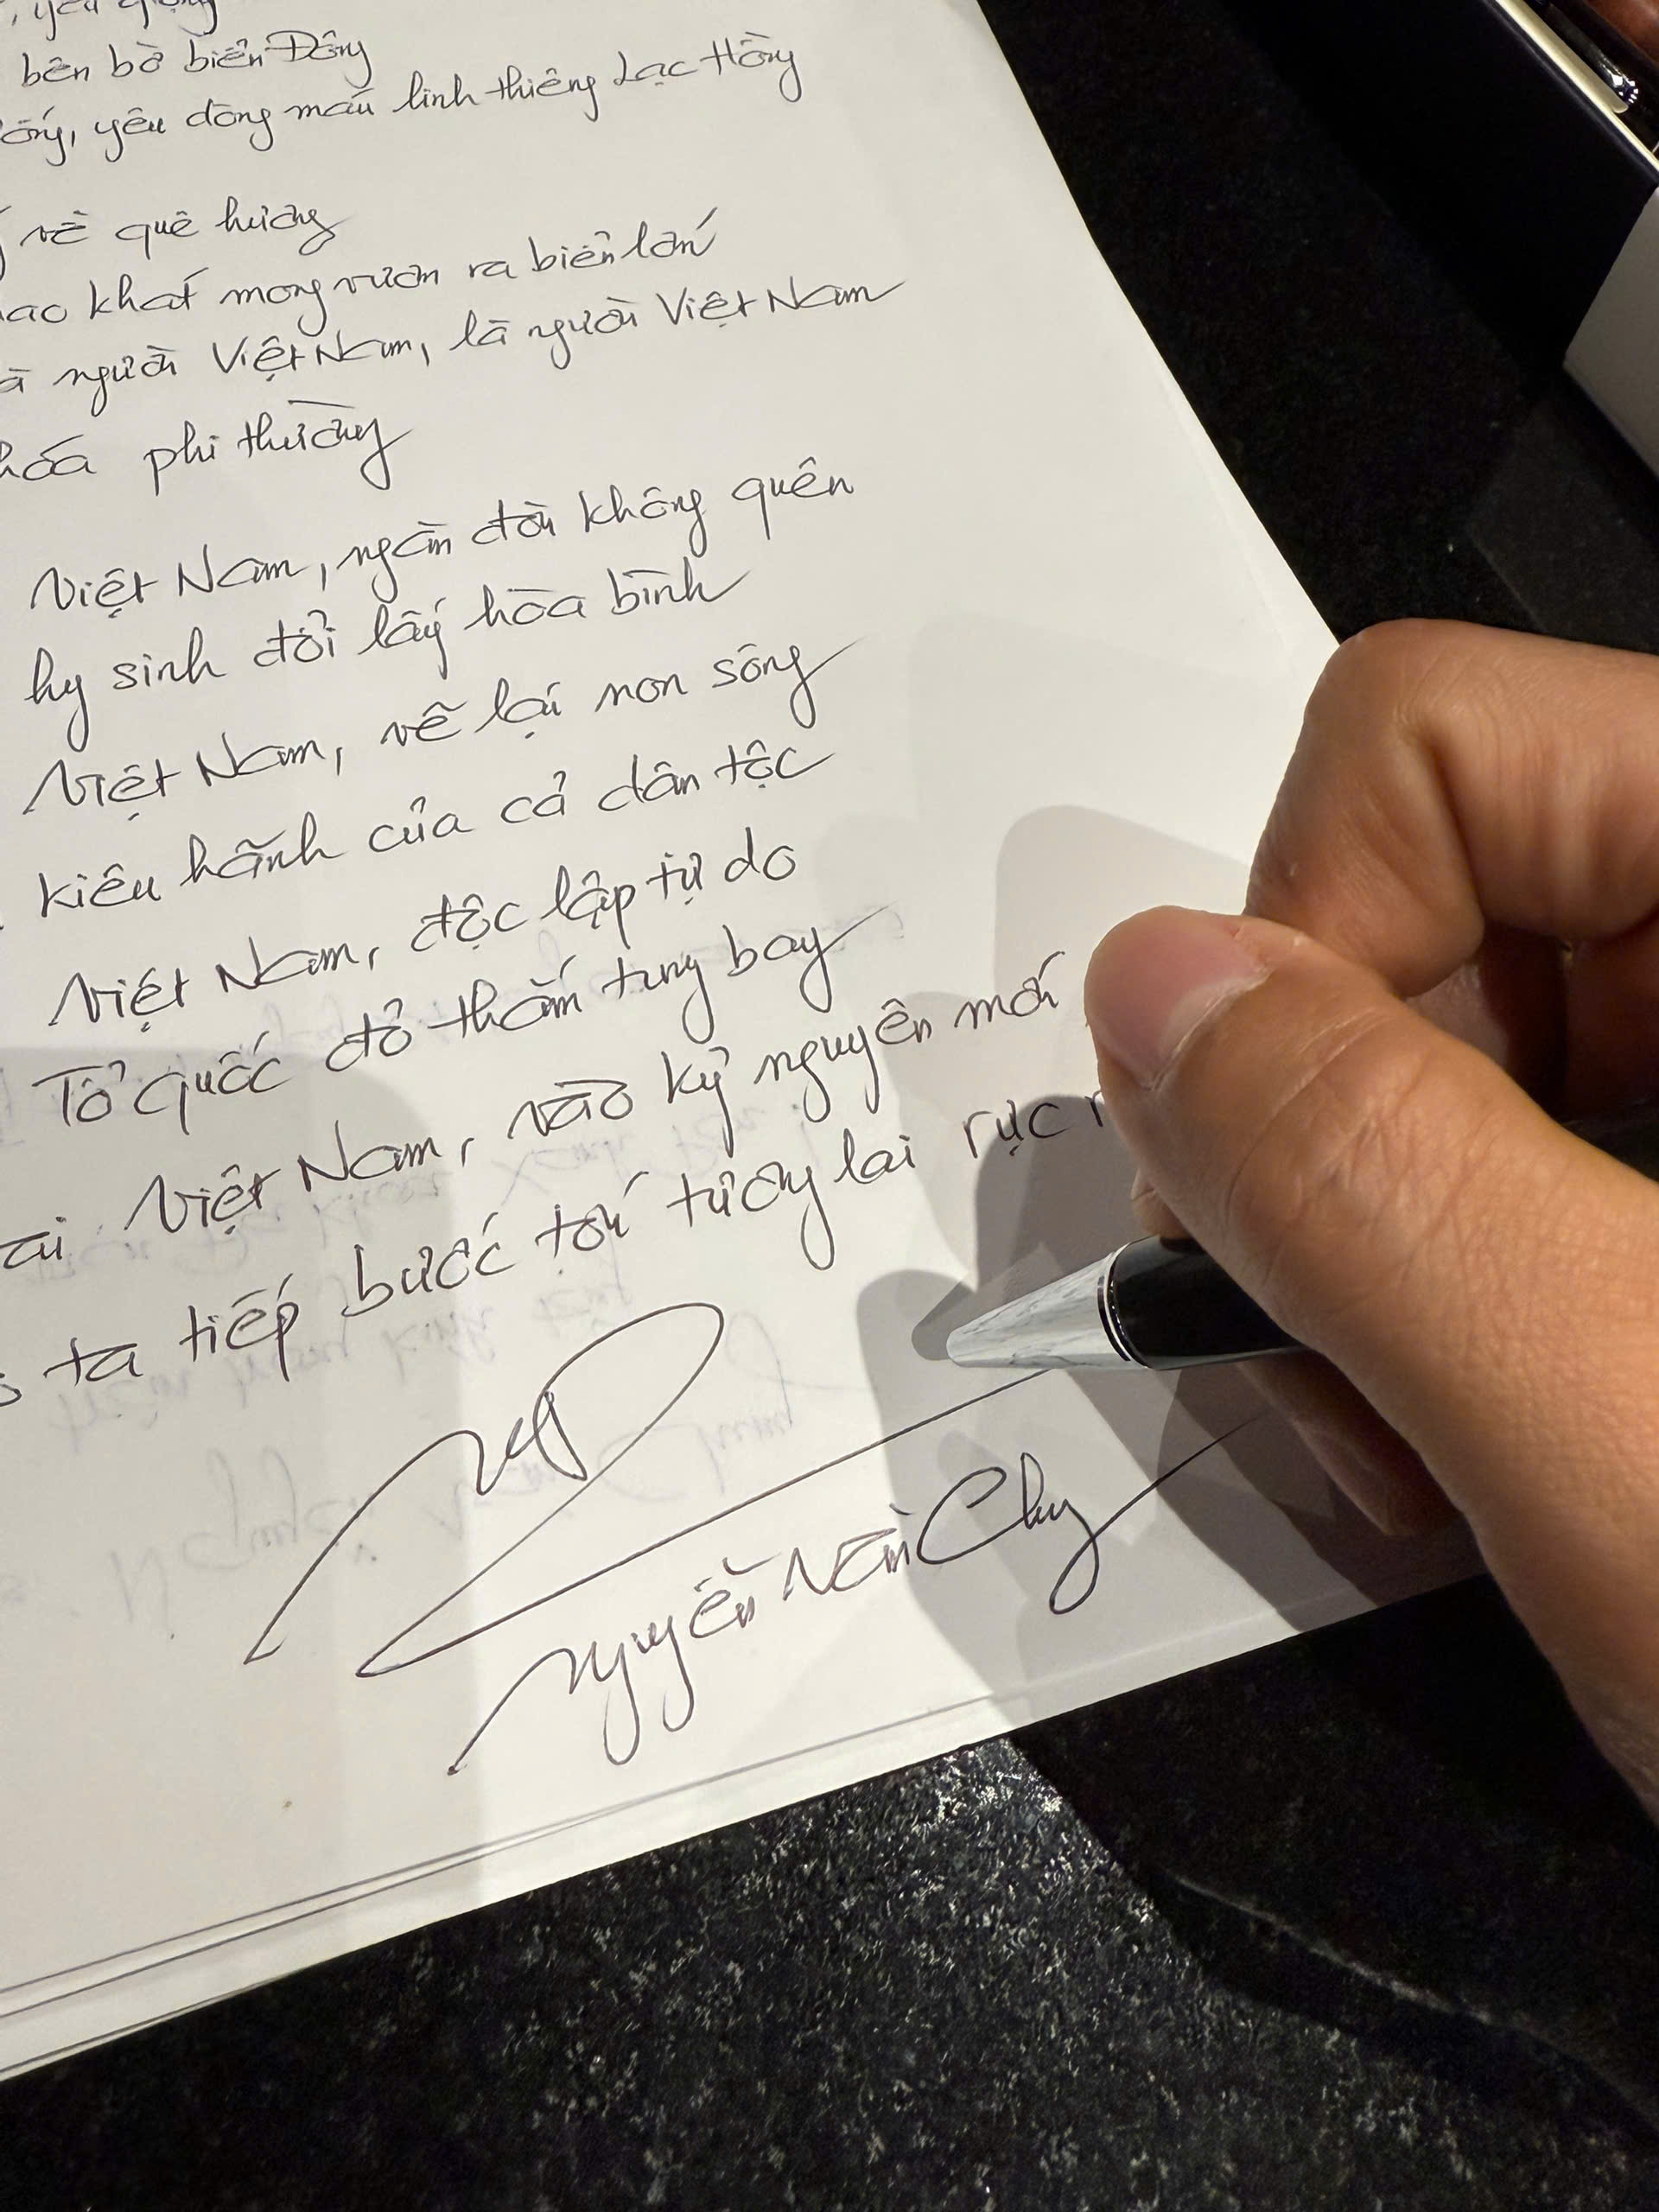 bên bờ biển Đông
yêu dòng máu linh thiêng Lạc Hồng
về quê hương
khát mong vươn ra biển lớn
người Việt Nam, là người Việt Nam
hóa phi thường
Việt Nam, ngàn đời không quên
hy sinh đổi lấy hòa bình
Việt Nam, vẽ lại non sông
kiêu hãnh của cả dân tộc
Việt Nam, độc lập tự do
Tổ quốc đỏ thắm tung bay
Việt Nam, vào kỷ nguyên mới
ta tiếp bước tới tương lai rực
Nguyễn Văn Chung